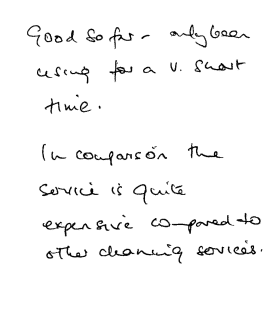 Good so far - only been
using for a v. short
time.
In comparison the
service is quite
expensive compared to
other cleaning services.